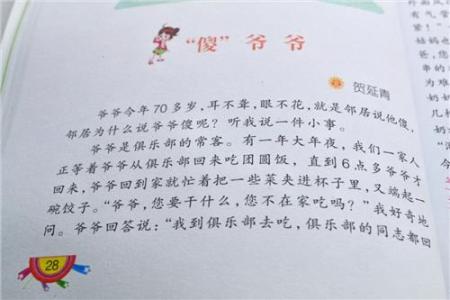 “傻”爷爷
贺延青
爷爷今年70多岁，耳不聋，眼不花，就是邻居说他傻，
邻居为什么说爷爷傻呢？听我说一件小事。
爷爷是俱乐部的常客。有一年大年夜，我们一家人
正等着爷爷从俱乐部回来吃团圆饭，直到6点多爷爷才
回来，爷爷回到家就忙着把一些菜夹进杯子里，又端起一
碗饺子。“爷爷，您要干什么，您不在家吃吗？”我好奇地
问。爷爷回答说：“我到俱乐部去吃，俱乐部的同志都回
28
有气管
紧！”
姑妈也
爸，您
串的
为难
奶奶
几杯
奶奶